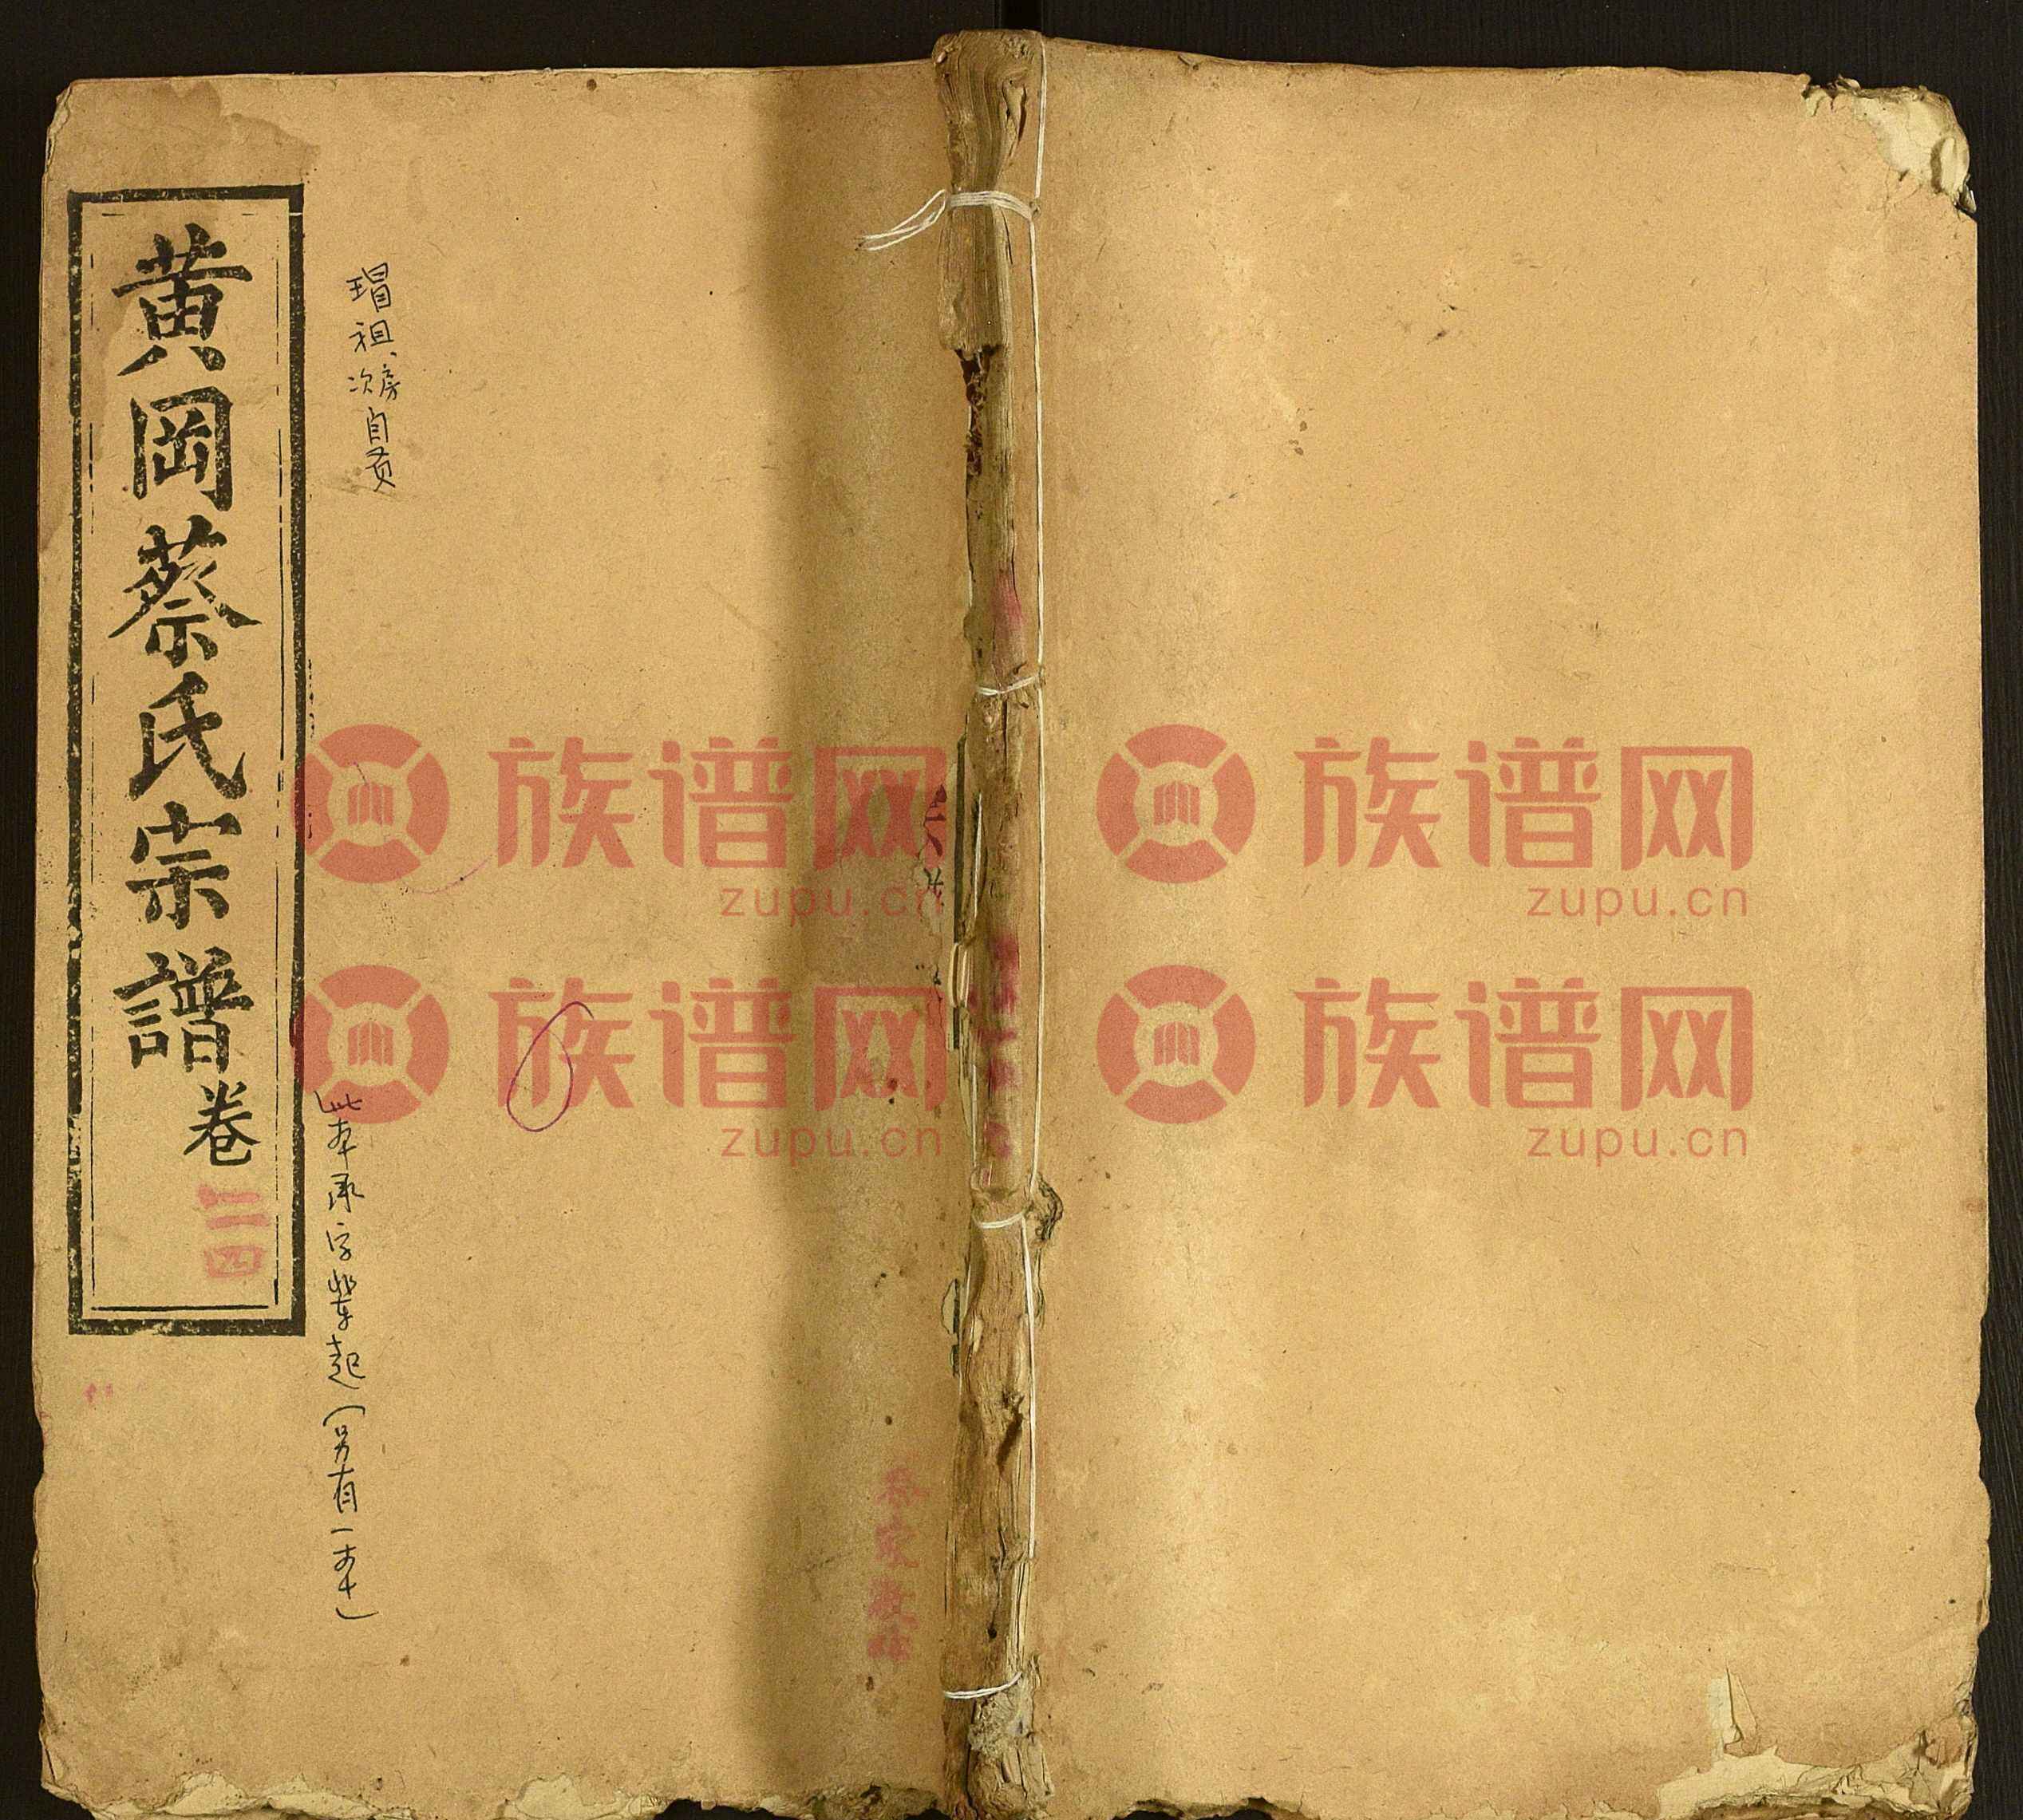 黄岡蔡氏宗譜卷
三四
瑁祖、次房自贡
此本承字輩起（另有一本）
族谱网
zupu.cn
族谱网
zupu.cn
族谱网
zupu.cn
族谱网
zupu.cn